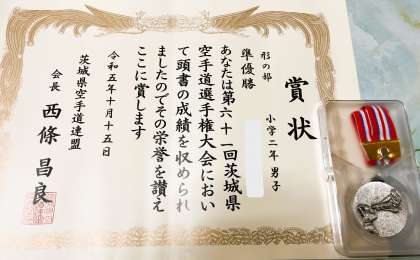 賞状
形の部
準優勝
小学二年 男子
あなたは第六十一回茨城県
空手道選手権大会におい
て頭書の成績を収められ
ましたのでその栄誉を讃え
ここに賞します
令和五年十月十五日
茨城県空手道連盟
会長 西條昌良